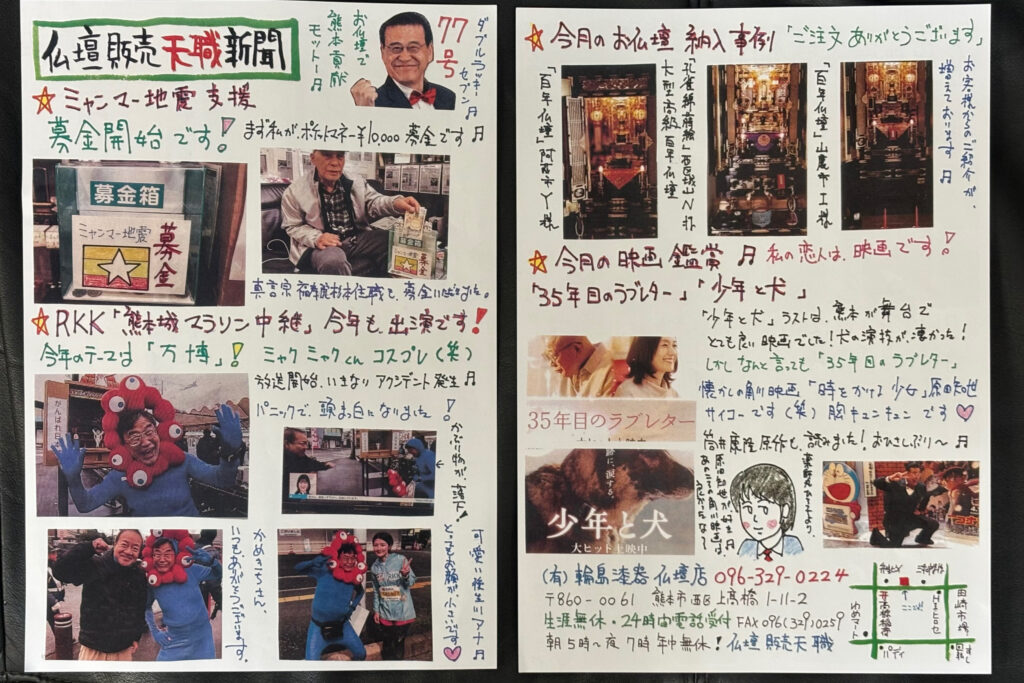 仏壇販売天職新聞
お仏壇で
熊本貢献
モットー♬
77号
ダブルラッキー
セブン♬
☆ミャンマー地震支援
募金開始です!
まず私が、ポケットマネー¥10,000募金です♬
募金箱
ミャンマー地震
募金
☆RKK「熊本城マラソン中継」今年も、出演です!
今年のテーマは「万博」!
ミャクミャクくんコスプレ(笑)
放送開始、いきなりアクシデント発生♬
パニックで、頭真っ白になりました♬
かぶり物が、落下!
がんばれ日
かめきちさん、
いつもありがとうございます。
可愛い後生川アナ♬
とってもお顔が小さいです♡
☆今月のお仏壇納入事例「ご注文ありがとうございます」
「百年仏壇」阿蘇市Y様
大型高級百年仏壇
「百年仏壇」山鹿市I様
お客様からのご紹介が、
増えております♬
☆今月の映画鑑賞♬私の恋人は、映画です!
「35年目のラブレター」「少年と犬」
「少年と犬」ラストは、熊本が舞台で
とても良い映画でした!犬の演技が、凄かった!
しかしなんと言っても「35年目のラブレター」
懐かしの角川映画「時をかける少女」原田知世
サイコーです(笑)胸キュンキュンです♡
筒井康隆原作も、読みました!おひさしぶり〜♬
35年目のラブレター
大ヒット上映中
少年と犬
大ヒット上映中
薬師丸ひろ子より、
原田知世が好き♬
(有)輪島漆器仏壇店 096-329-0224
〒860-0061 熊本市西区上高橋1-11-2
生涯無休・24時間電話受付 FAX096(329)0259
朝5時〜夜7時年中無休!仏壇販売天職
田崎市場